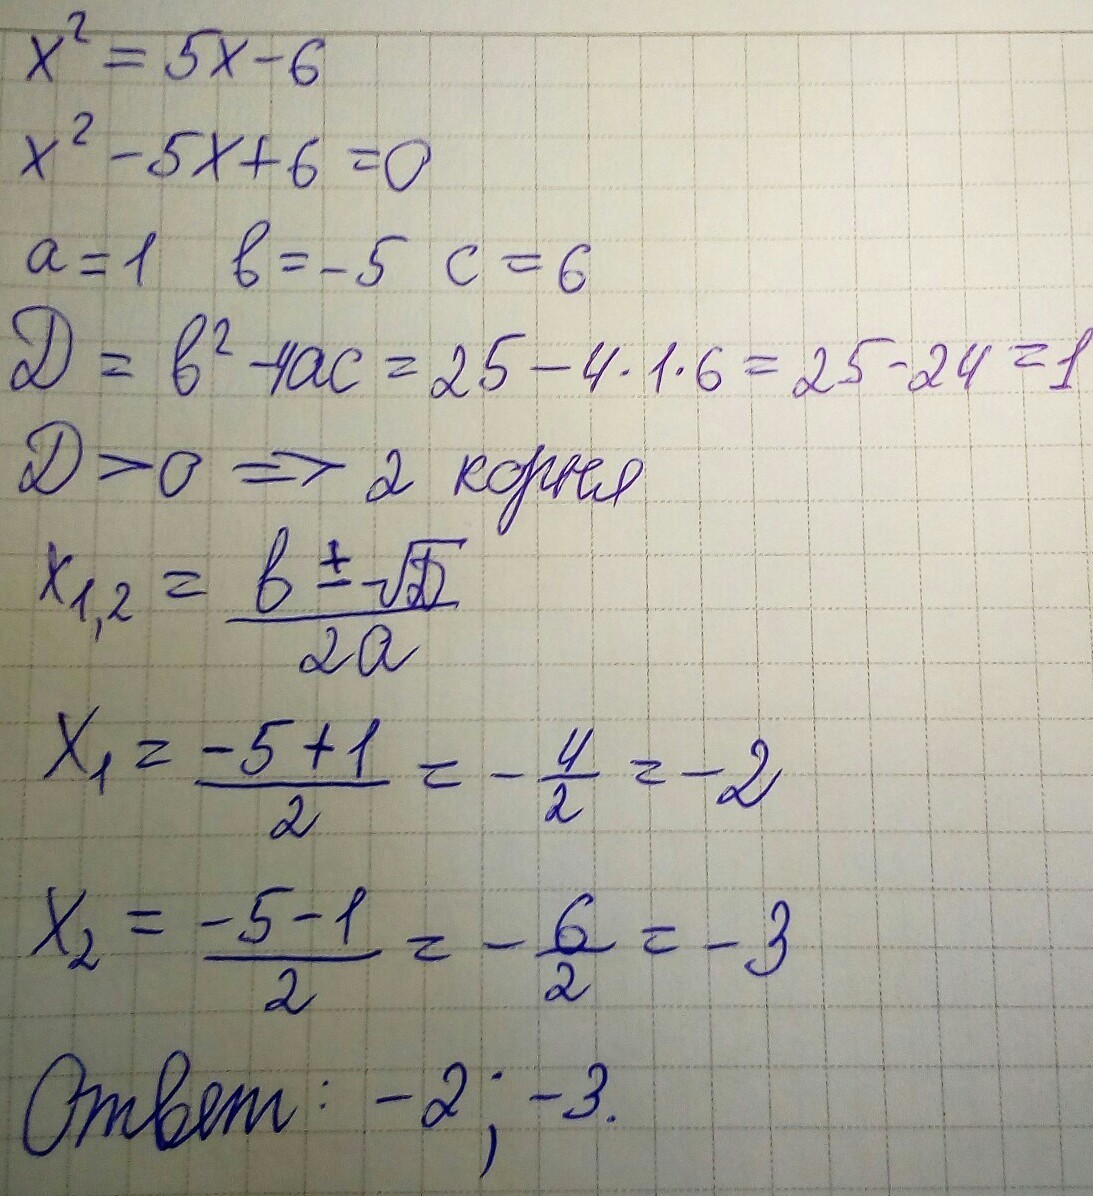 x² = 5x - 6
x² - 5x + 6 = 0
a = 1 в = -5 c = 6
D = в² - 4ac = 25 - 4 · 1 · 6 = 25 - 24 = 1
D > 0 => 2 корня
x₁,₂ = (в ± √D) / 2a
x₁ = (-5 + 1) / 2 = - 4/2 = -2
x₂ = (-5 - 1) / 2 = - 6/2 = -3
Ответ: -2; -3.